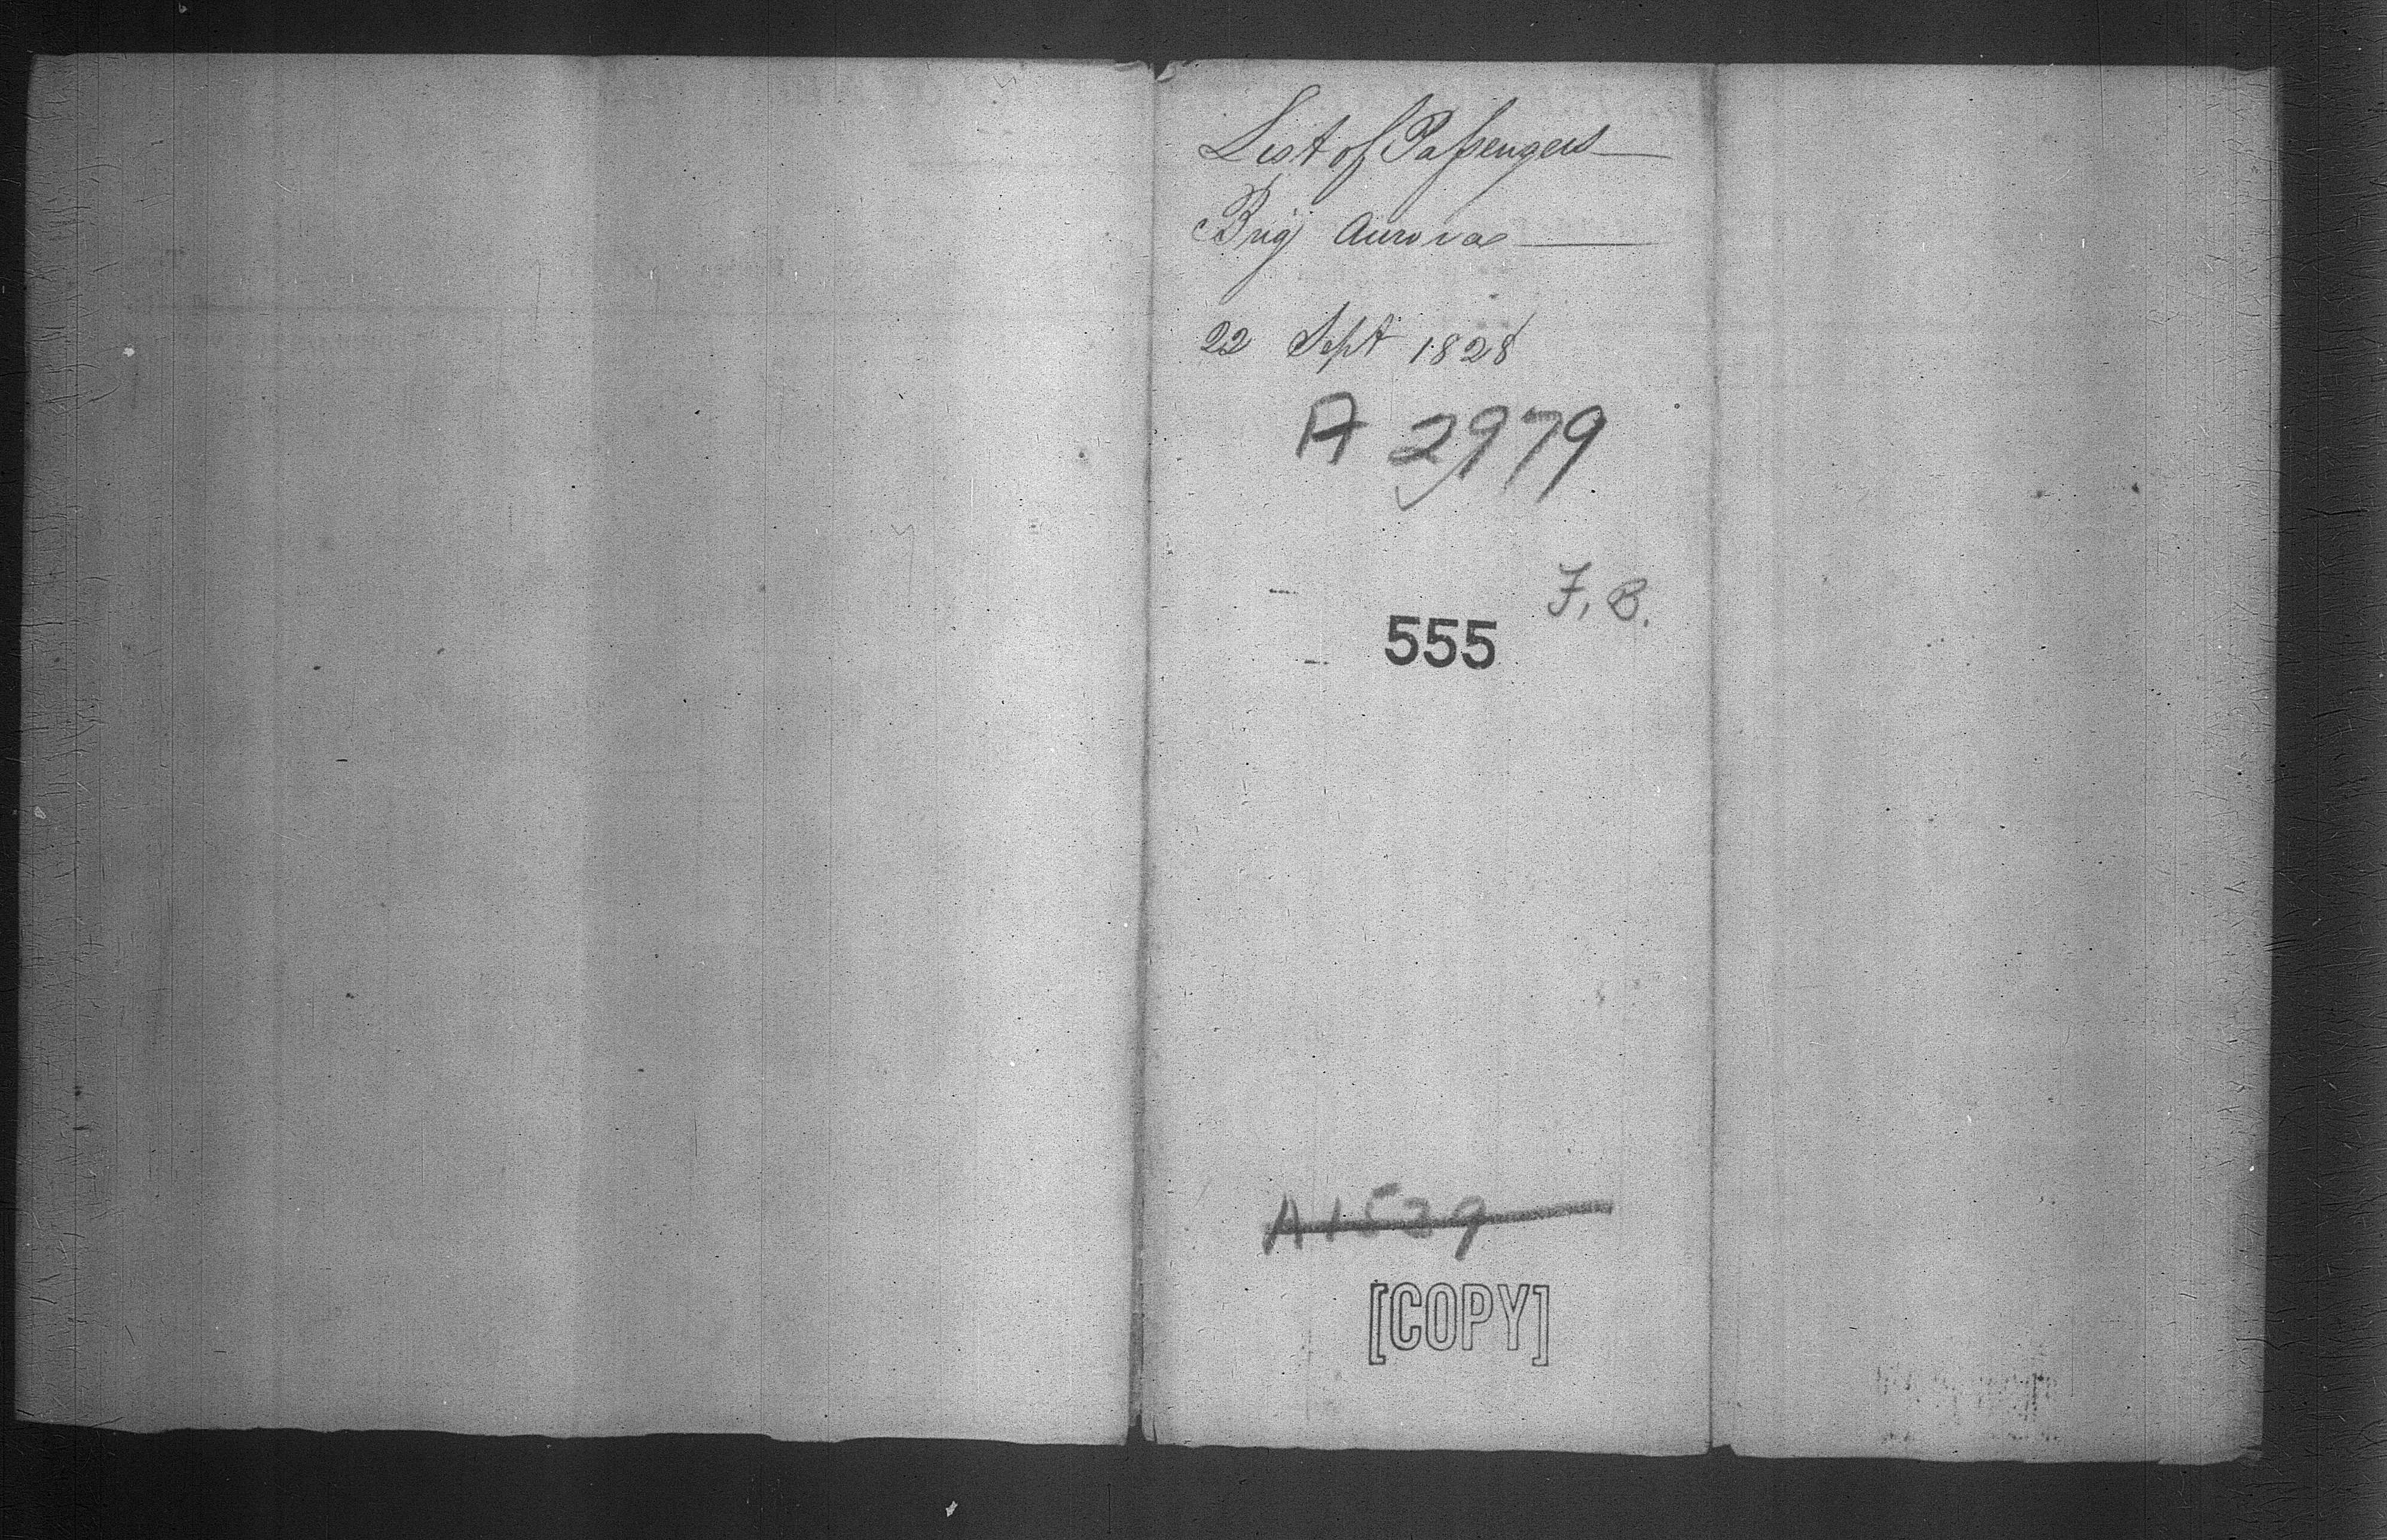 List of Passengers
Brig Aurora
22 Sept 1828
A 2979
F. B.
555
A1539
[COPY]